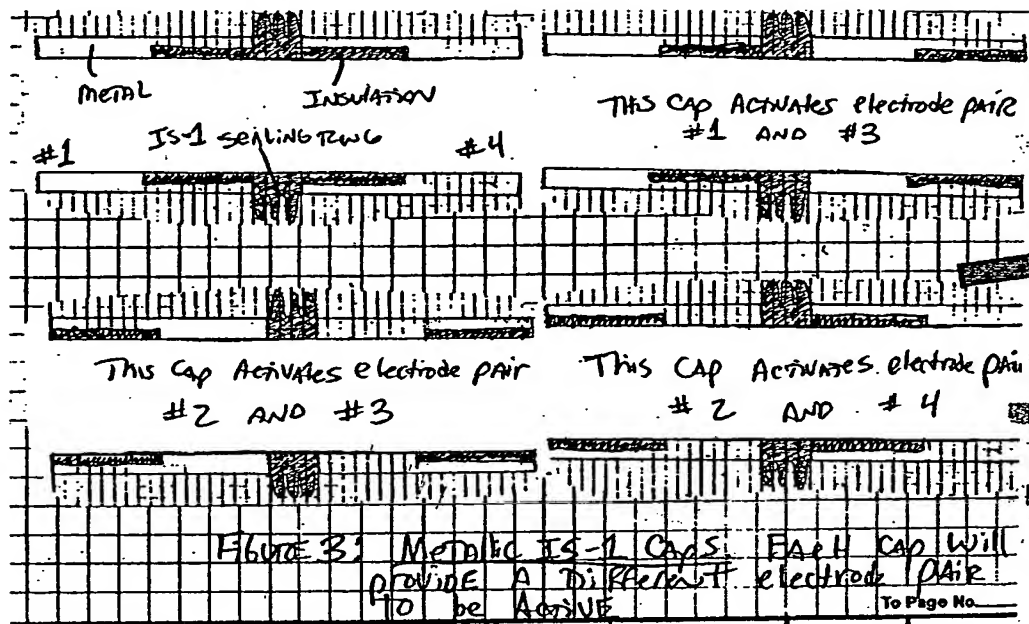 METAL
INSULATION
THIS CAP ACTIVATES electrode PAIR
#1 AND #3
#1
IS-1 SEALING RING
#4
THIS CAP ACTIVATES electrode PAIR
#2 AND #3
THIS CAP ACTIVATES electrode PAIR
#2 AND #4
FIGURE 3: METALLIC IS-1 CAPS. EACH CAP WILL
PROVIDE A DIFFERENT electrode PAIR
TO be ACTIVE
To Page No.